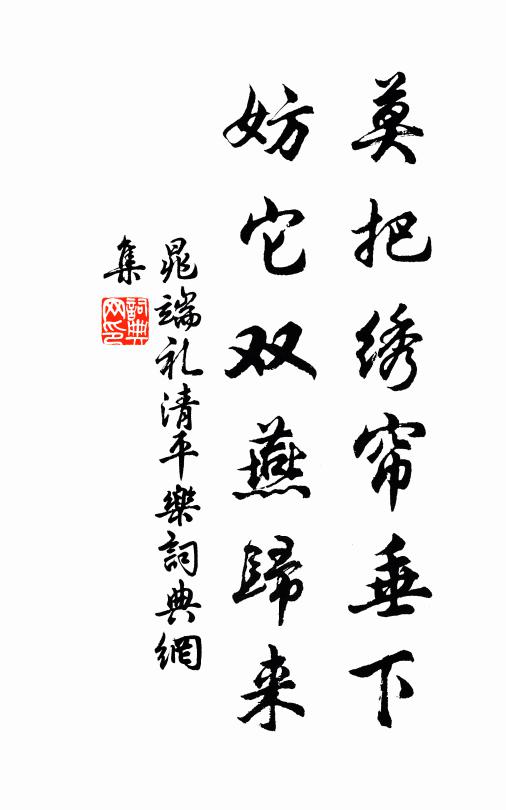 莫把绣帘垂下
妨它双燕歸来
晁端礼清平樂詞典網
集
詞典网印